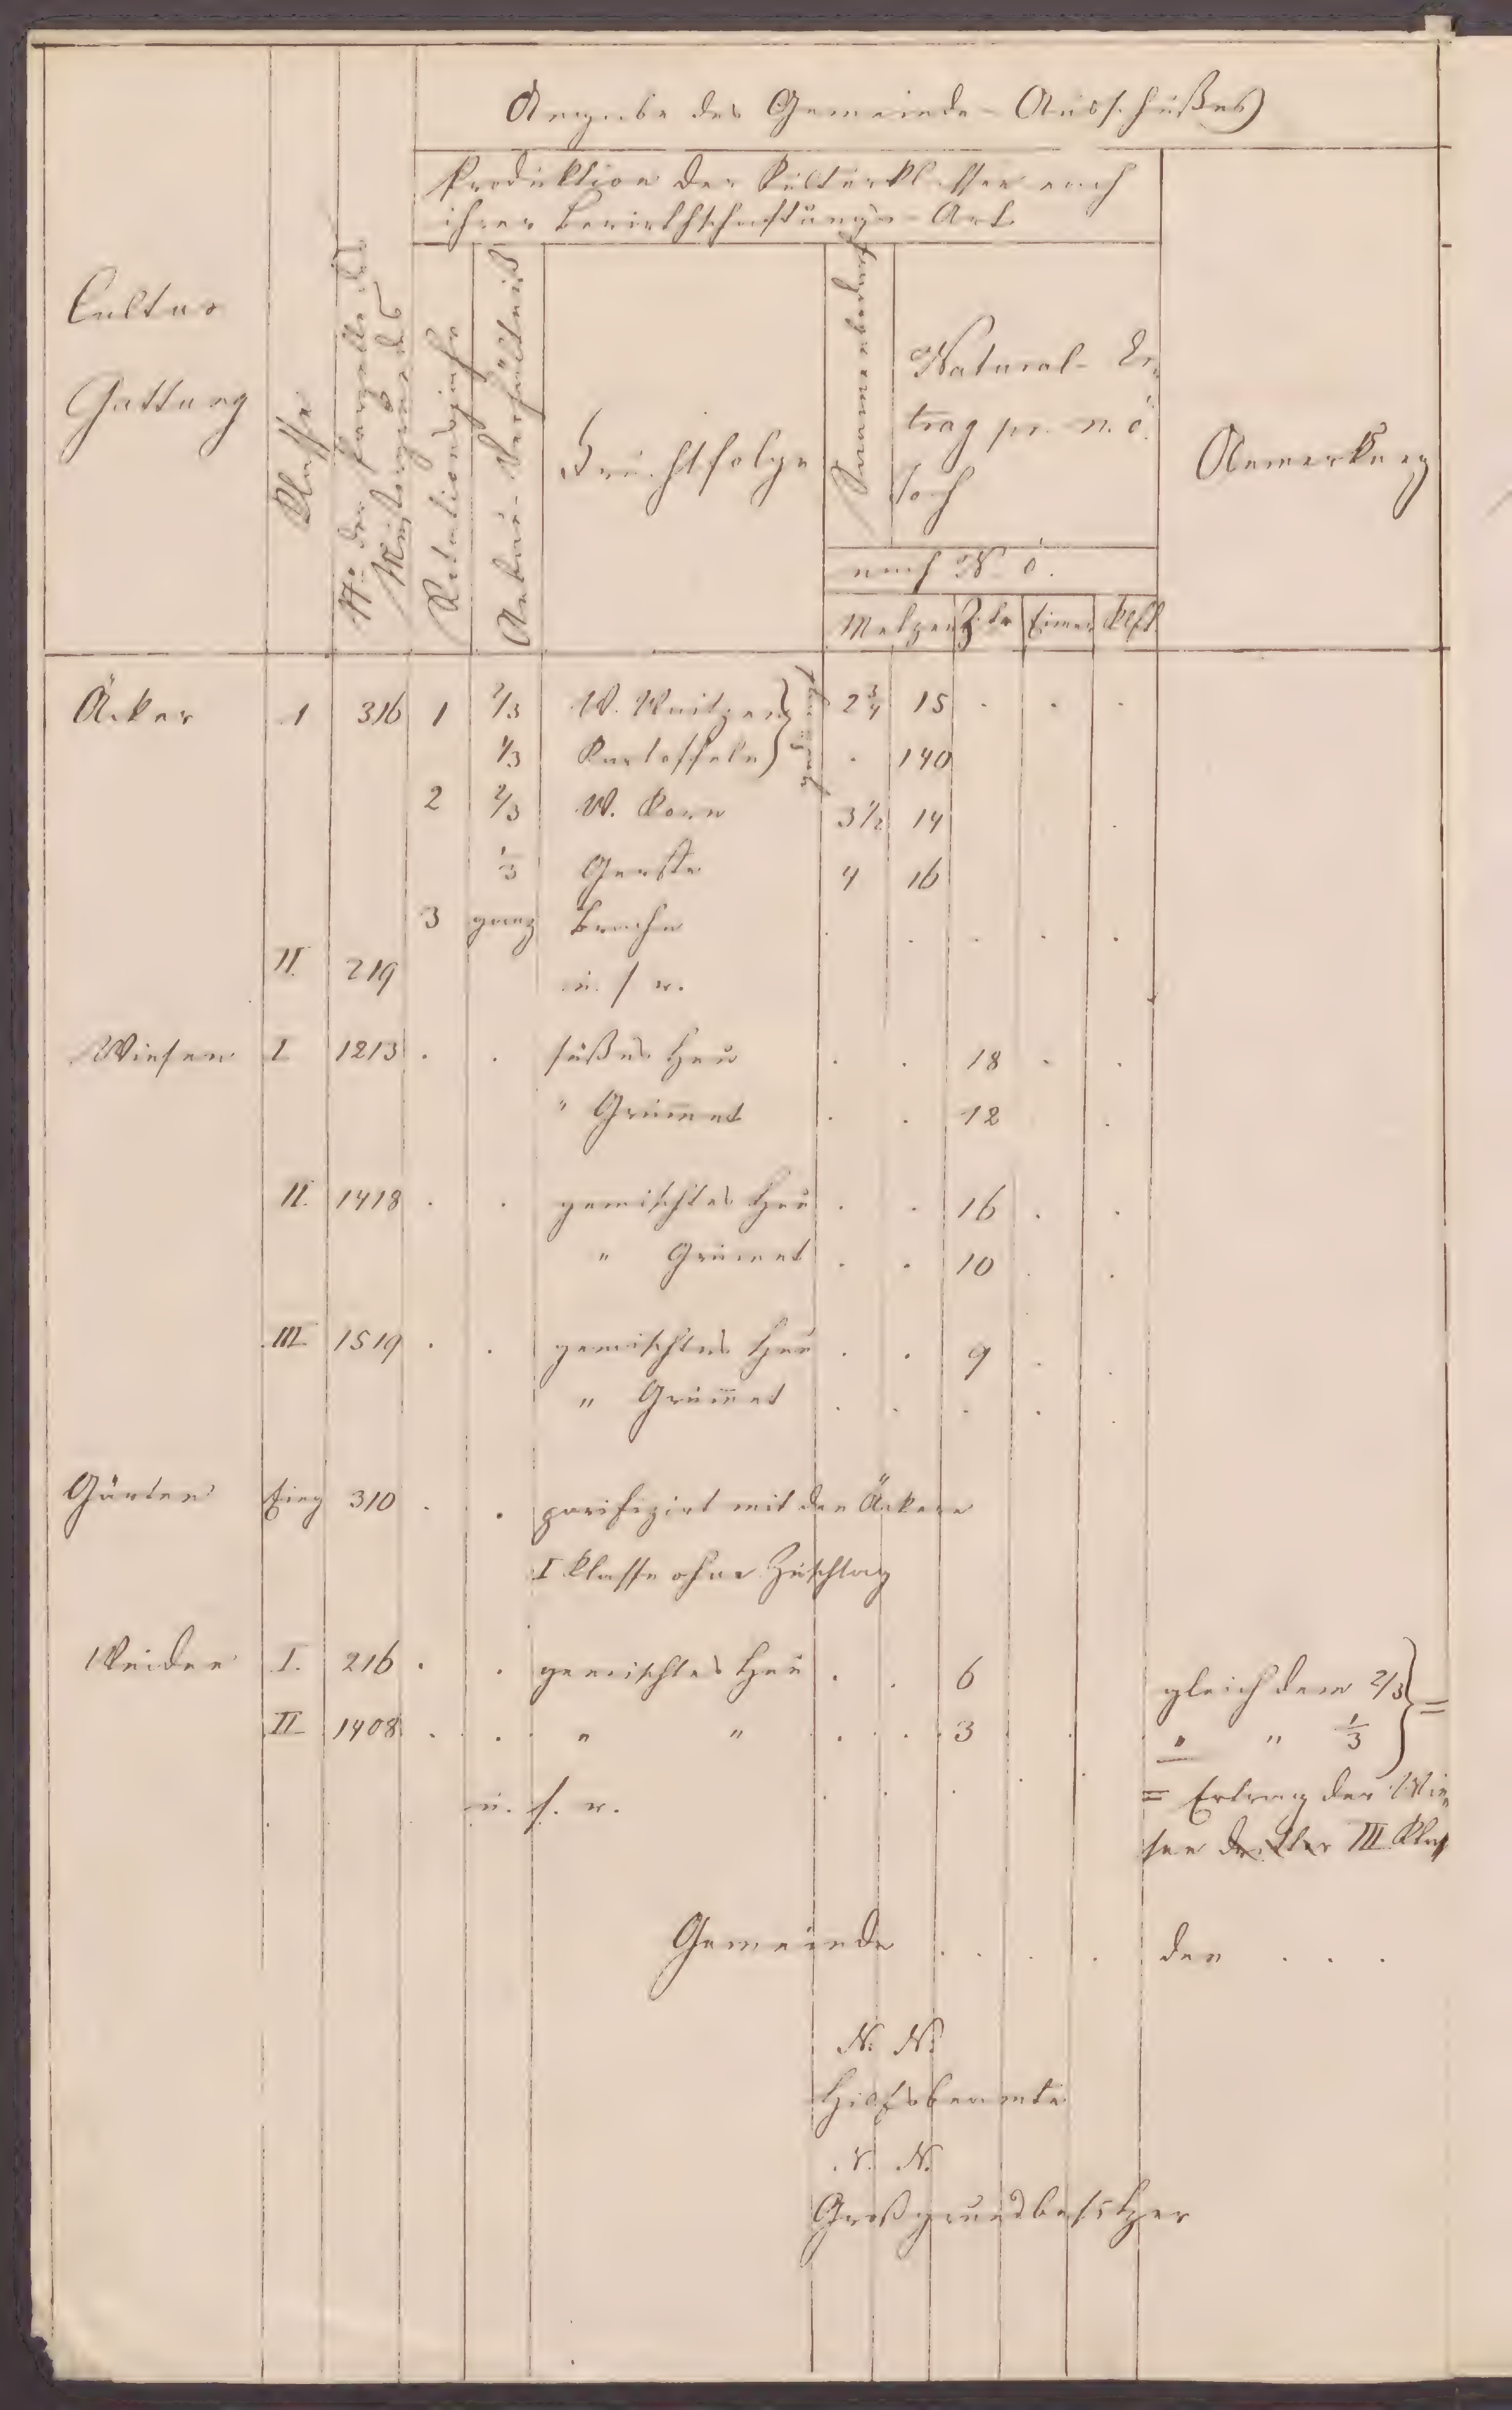 Angabe des Gemeinde-Ausschußes
Produktion der Kulturklassen nach
ihrer Bewirthschaftungs-Art
Cultur
Gattung
Klasse
No der Parzelle des
Mustergrundes
Rotationsjahr
Anbau-Verhältniß
Fruchtfolge
Samenbedarf
Natural-Er-
trag pr. n. ö.
Joch
nach N. ö.
Metzen Ztr Eimer Klft.
Anmerkung
Äcker I 316 1 2/3 W. Weitzen 2 3/4 15 . . .
1/3 Kartoffeln . 140
2 2/3 W. Korn 3 1/2 14
1/3 Gerste 4 16
3 ganz Brache . . . . .
II. 219 u. s w.
Wiesen I 1213 . . süßes Heu . . 18 . .
" Grum̄et . . 12 .
II. 1418 . . gemischtes Heu . . 16 . .
" Grumet . . 10 . .
III 1519 . . gemischtes Heu . . 9 . .
" Grum̄et . . . . .
Gärten Einz 310 . . parifizirt mit den Äckern
I Klasse ohne Zuschlag
Weiden I. 216 . . gemischtes Heu . . 6 gleich dem 2/3 } =
II 1408 . . " " . . 3 . . " " 1/3
u. s. w.
= Ertrag der Wie-
sen dritter III Klaß
Gemeinde . . . . den . . .
N. N.
Hilfsbeamte
N. N.
Großgrundbesitzer